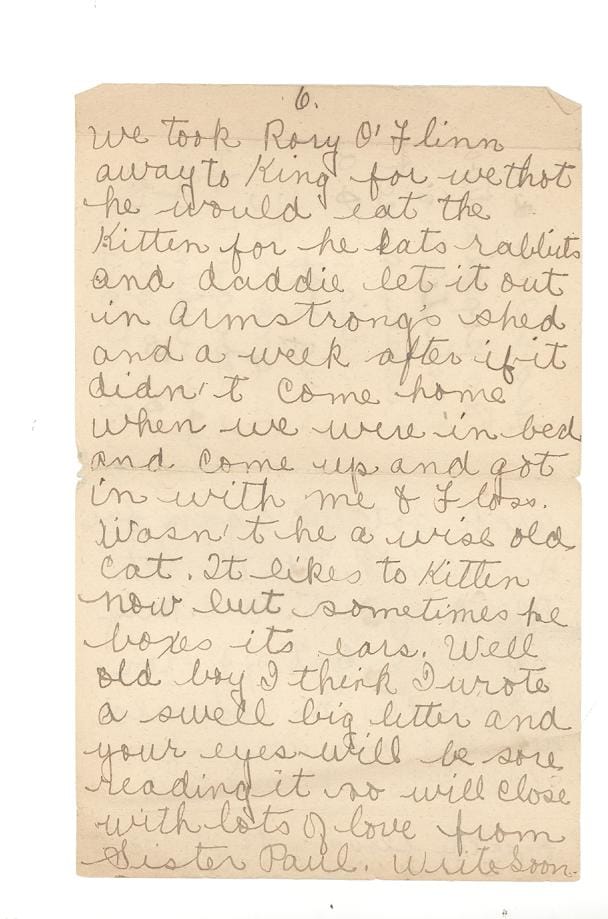 6.
we took Rory O'Flinn
away to King for we thot
he would eat the
Kitten for he Eats rabbits
and daddie let it out
in Armstrong's shed
and a week after if it
didn't come home
when we were in bed
and come up and got
in with me & Floss.
Wasn't he a wise old
cat. It likes to Kitten
now but sometimes he
boxes its ears. Well
old boy I think I wrote
a swell big letter and
your eyes will be sore
reading it so will close
with lots of love from
Sister Paul. Write Soon.